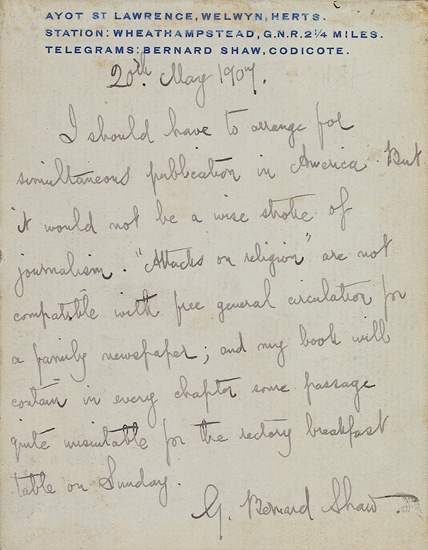 AYOT ST LAWRENCE, WELWYN, HERTS.
STATION: WHEATHAMPSTEAD, G.N.R. 2¼ MILES.
TELEGRAMS: BERNARD SHAW, CODICOTE.
20th May 1907.
I should have to arrange for
simultaneous publication in America. But
it would not be a wise stroke of
journalism. "Attacks on religion" are not
compatible with free general circulation for
a family newspaper; and my book will
contain in every chapter some passage
quite unsuitable for the rectory breakfast
table on Sunday.
G. Bernard Shaw